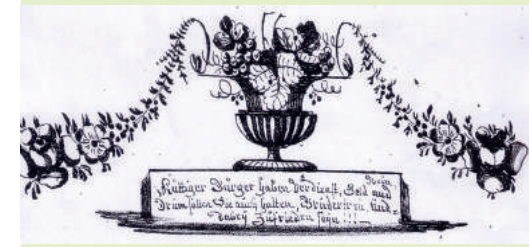 Küttiger Bürger haben Verdienst, Geld und Wein,
Drum sollen Sie auch halten, Brüdertreu, und
dabey Zufrieden seyn !!!